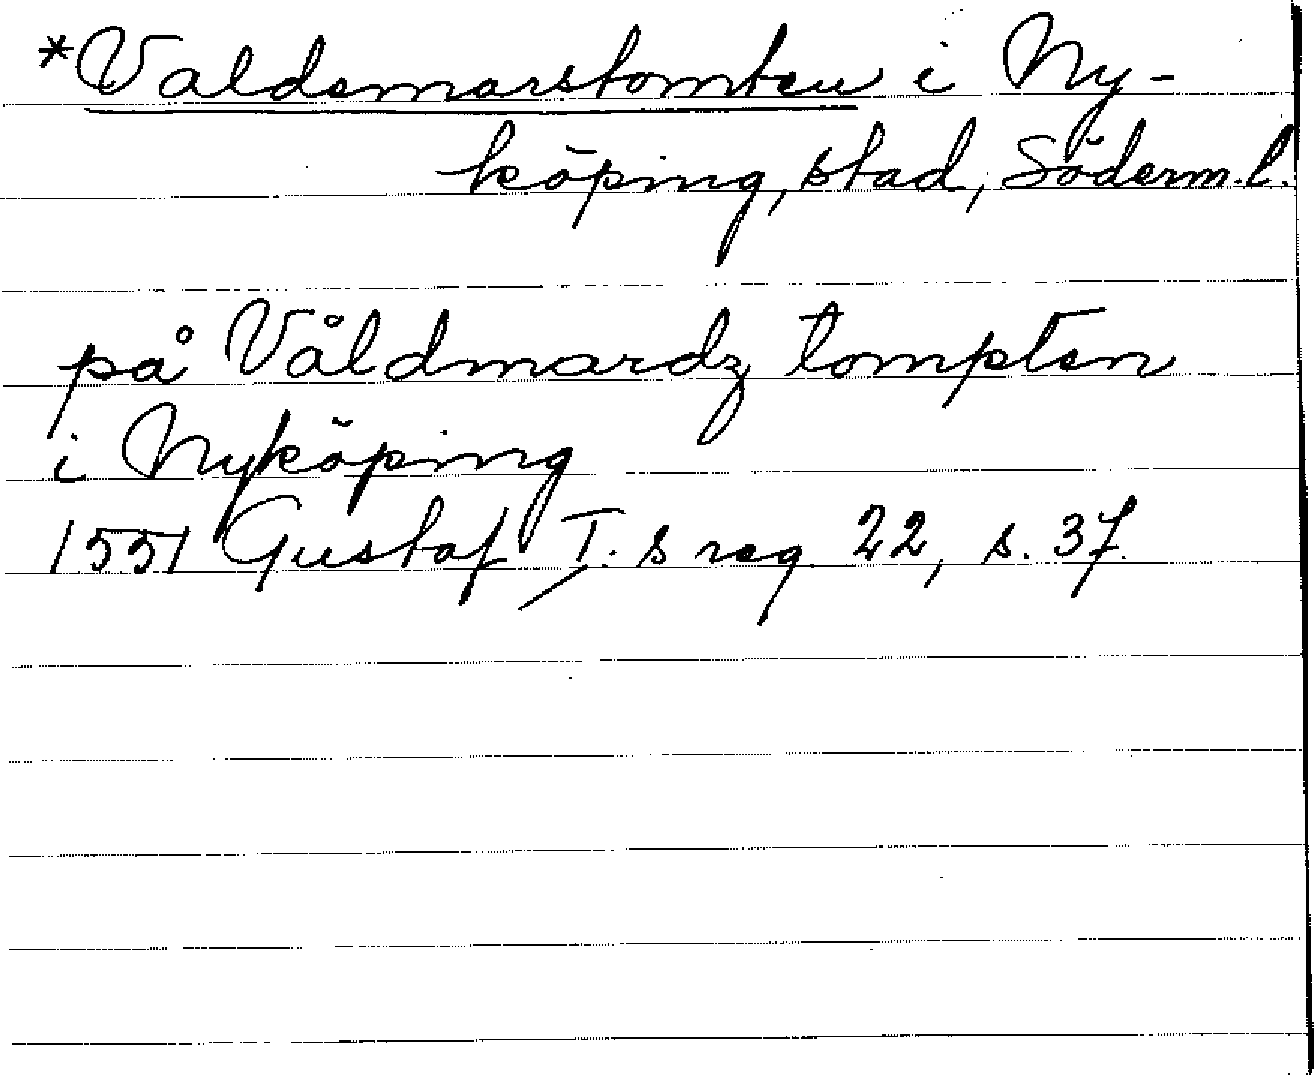 *Valdemarstomten i Ny-
köping, stad, Söderm. l.
på Våldmardz tompten
i Nyköping
1551 Gustaf I. s reg. 22, s. 37.